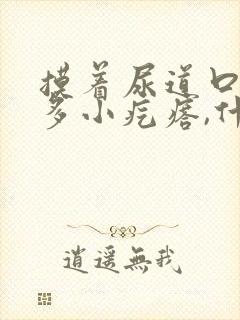 摸着尿道口
多小疙瘩,什
逍遥無我